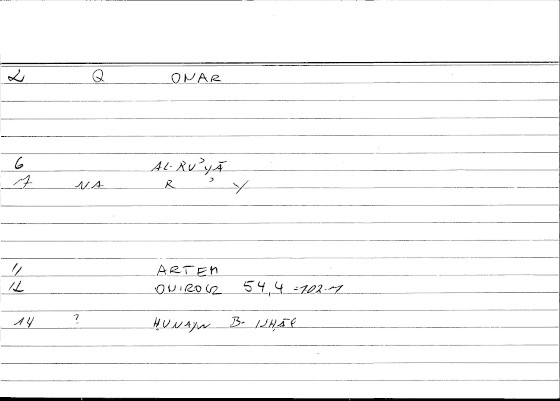 2 Q ONAR
6 AL-RUʾYĀ
7 NA R ʾ Y
11 ARTEM
12 ONIROCR 54,4 = 102.1
14 ? ḤUNAYN B. ISḤĀQ